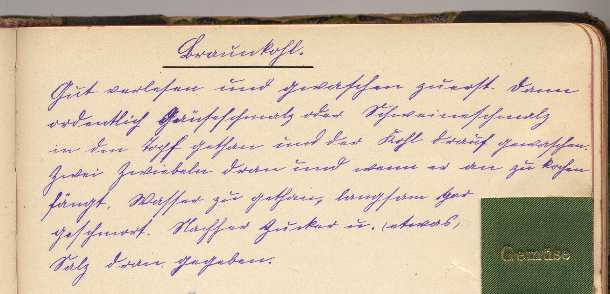 Braunkohl.
Gut verlesen und gewaschen zuerst. Dann
ordentlich Gänseschmalz oder Schweineschmalz
in den Topf gethan und der Kohl drauf gewaschen.
Zwei Zwiebeln dran und wenn er an zu kochen
fängt, Wasser zu gethan, langsam gar
geschmort. Nachher Zucker u. etwas,
Salz dran gegeben.
Gemüse